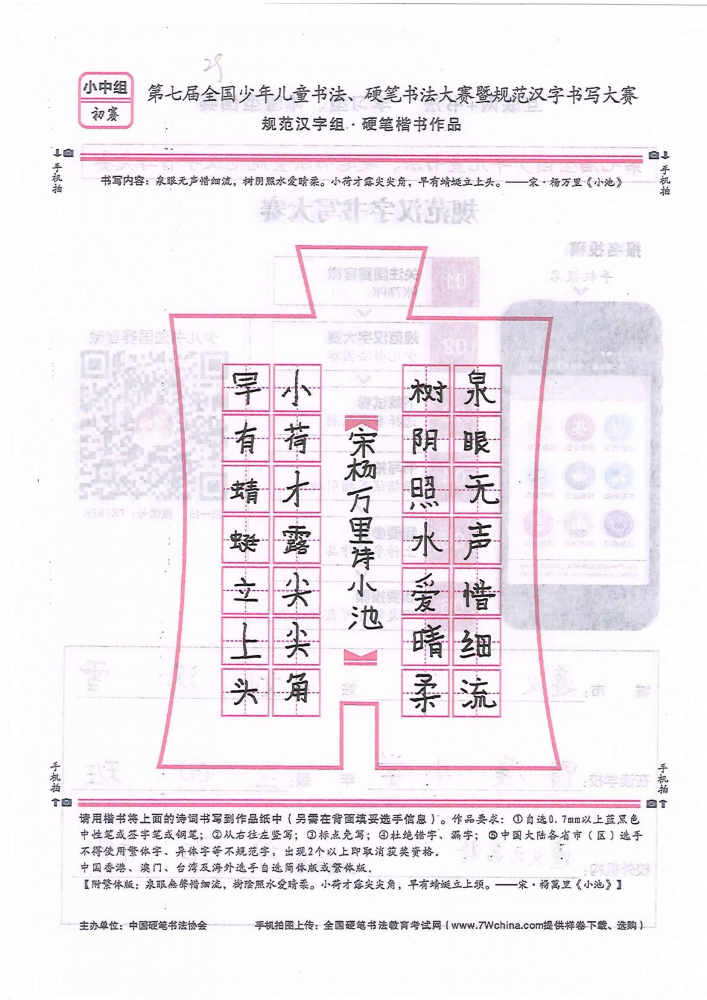 29
小中组
初赛
第七届全国少年儿童书法、硬笔书法大赛暨规范汉字书写大赛
规范汉字组·硬笔楷书作品
手机拍
手机拍
书写内容：泉眼无声惜细流，树阴照水爱晴柔。小荷才露尖尖角，早有蜻蜓立上头。——宋·杨万里《小池》
泉眼无声惜细流
树阴照水爱晴柔
宋杨万里诗小池
小荷才露尖尖角
早有蜻蜓立上头
手机拍
手机拍
请用楷书将上面的诗词书写到作品纸中（另需在背面填妥选手信息）。作品要求：①自选0.7mm以上蓝黑色
中性笔或签字笔或钢笔；②从右往左竖写；③标点免写；④杜绝错字、漏字；⑤中国大陆各省市（区）选手
不得使用繁体字、异体字等不规范字，出现2个以上即取消获奖资格。
中国香港、澳门、台湾及海外选手自选简体版或繁体版。
【附繁体版：泉眼無聲惜細流，樹陰照水愛晴柔。小荷才露尖尖角，早有蜻蜓立上頭。——宋·楊萬里《小池》】
主办单位：中国硬笔书法协会
手机拍图上传：全国硬笔书法教育考试网（www.7Wchina.com提供样卷下载、选购）